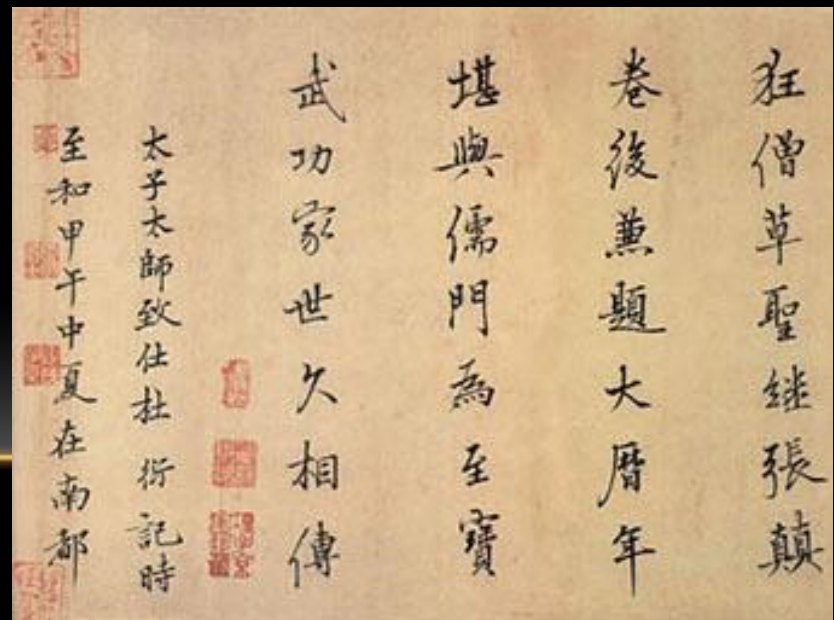 狂僧草聖继張顛
卷後兼題大曆年
堪與儒門為至寶
武功家世久相傳
太子太師致仕杜衍記時
至和甲午中夏在南都